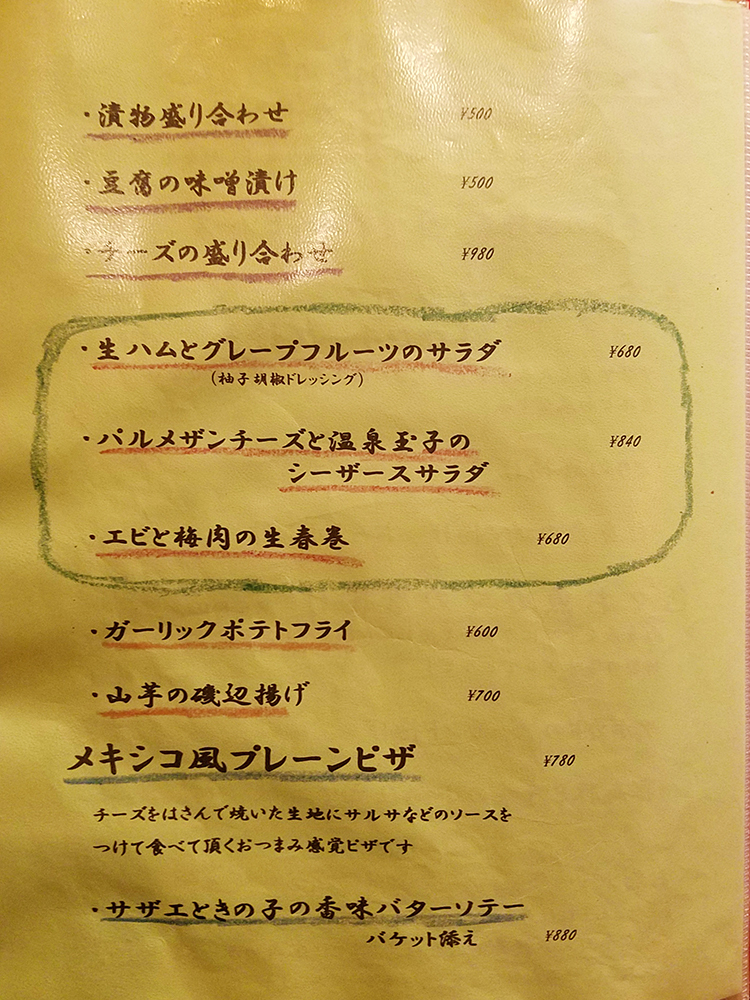 ・漬物盛り合わせ ¥500
・豆腐の味噌漬け ¥500
・チーズの盛り合わせ ¥980
・生ハムとグレープフルーツのサラダ ¥680
(柚子胡椒ドレッシング)
・パルメザンチーズと温泉玉子の ¥840
シーザースサラダ
・エビと梅肉の生春巻 ¥680
・ガーリックポテトフライ ¥600
・山芋の磯辺揚げ ¥700
メキシコ風プレーンピザ ¥780
チーズをはさんで焼いた生地にサルサなどのソースを
つけて食べて頂くおつまみ感覚ピザです
・サザエときの子の香味バターソテー
バケット添え ¥880